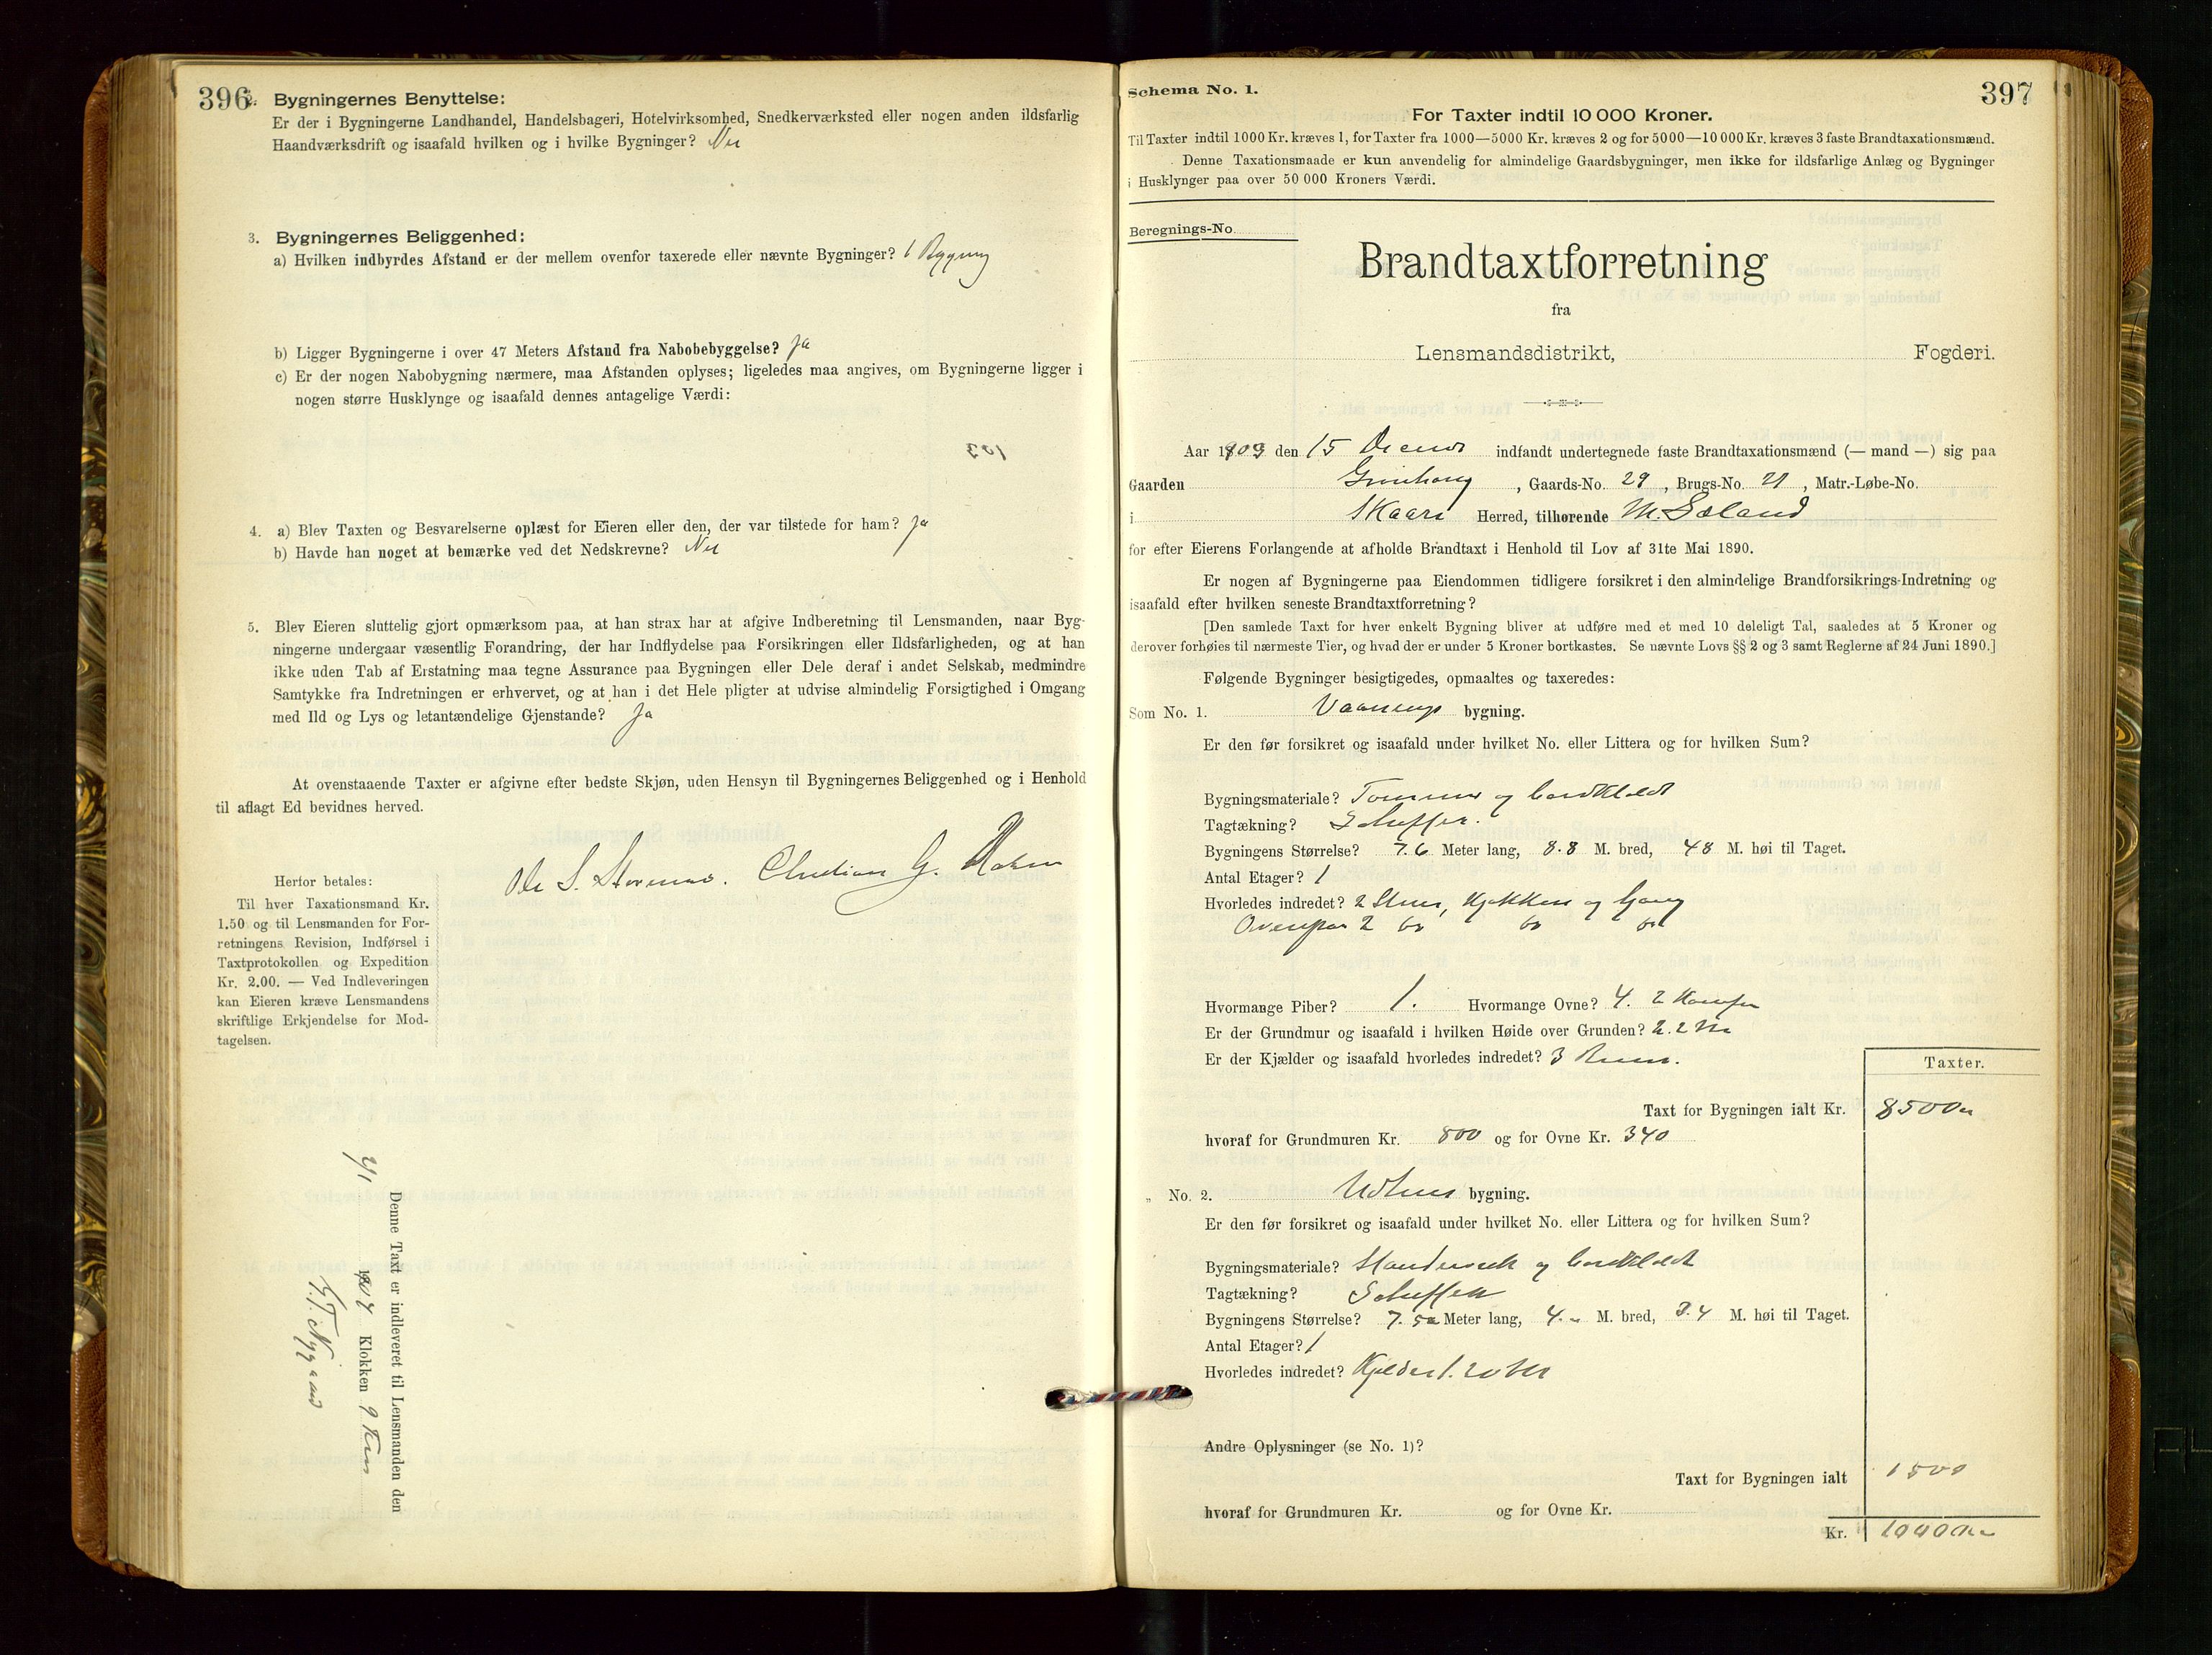 396
2. Bygningernes Benyttelse:
Er der i Bygningerne Landhandel, Handelsbageri, Hotelvirksomhed, Snedkerværksted eller nogen anden ildsfarlig
Haandværksdrift og isaafald hvilken og i hvilke Bygninger? Nei
3. Bygningernes Beliggenhed:
a) Hvilken indbyrdes Afstand er der mellem ovenfor taxerede eller nævnte Bygninger? 1 Bygning
b) Ligger Bygningerne i over 47 Meters Afstand fra Nabobebyggelse? Ja
c) Er der nogen Nabobygning nærmere, maa Afstanden oplyses; ligeledes maa angives, om Bygningerne ligger i
nogen større Husklynge og isaafald dennes antagelige Værdi:
4. a) Blev Taxten og Besvarelserne oplæst for Eieren eller den, der var tilstede for ham? Ja
b) Havde han noget at bemærke ved det Nedskrevne? Nei
5. Blev Eieren sluttelig gjort opmærksom paa, at han strax har at afgive Indberetning til Lensmanden, naar Byg-
ningerne undergaar væsentlig Forandring, der har Indflydelse paa Forsikringen eller Ildsfarligheden, og at han
ikke uden Tab af Erstatning maa tegne Assurance paa Bygningen eller Dele deraf i andet Selskab, medmindre
Samtykke fra Indretningen er erhvervet, og at han i det Hele pligter at udvise almindelig Forsigtighed i Omgang
med Ild og Lys og letantændelige Gjenstande? Ja
At ovenstaaende Taxter er afgivne efter bedste Skjøn, uden Hensyn til Bygningernes Beliggenhed og i Henhold
til aflagt Ed bevidnes herved.
Ole S. Christian G.
Herfor betales:
Til hver Taxationsmand Kr.
1.50 og til Lensmanden for For-
retningens Revision, Indførsel i
Taxtprotokollen og Expedition
Kr. 2.00. — Ved Indleveringen
kan Eieren kræve Lensmandens
skriftlige Erkjendelse for Mod-
tagelsen.
Denne Taxt er indleveret til Lensmanden den
2/1 1904 Klokken 9
Nygaard
Schema No. 1.
397
For Taxter indtil 10 000 Kroner.
Til Taxter indtil 1000 Kr. kræves 1, for Taxter fra 1000—5000 Kr. kræves 2 og for 5000—10 000 Kr. kræves 3 faste Brandtaxationsmænd.
Denne Taxationsmaade er kun anvendelig for almindelige Gaardsbygninger, men ikke for ildsfarlige Anlæg og Bygninger
i Husklynger paa over 50 000 Kroners Værdi.
Beregnings-No.
Brandtaxtforretning
fra
Lensmandsdistrikt, Fogderi.
Aar 1903 den 15 indfandt undertegnede faste Brandtaxationsmænd (— mand —) sig paa
Gaarden , Gaards-No. 29 , Brugs-No. 21 , Matr.-Løbe-No.
i Skaare Herred, tilhørende M. Sæland
for efter Eierens Forlangende at afholde Brandtaxt i Henhold til Lov af 31te Mai 1890.
Er nogen af Bygningerne paa Eiendommen tidligere forsikret i den almindelige Brandforsikrings-Indretning og
isaafald efter hvilken seneste Brandtaxtforretning?
[Den samlede Taxt for hver enkelt Bygning bliver at udføre med et med 10 deleligt Tal, saaledes at 5 Kroner og
derover forhøies til nærmeste Tier, og hvad der er under 5 Kroner bortkastes. Se nævnte Lovs §§ 2 og 3 samt Reglerne af 24 Juni 1890.]
Følgende Bygninger besigtigedes, opmaaltes og taxeredes:
Som No. 1. Vaanings bygning.
Er den før forsikret og isaafald under hvilket No. eller Littera og for hvilken Sum?
Bygningsmateriale? Tømmer og bordklædt
Tagtækning? Skiffer.
Bygningens Størrelse? 7.6 Meter lang, 8.8 M. bred, 48 M. høi til Taget.
Antal Etager? 1
Hvorledes indredet? 2 Stuer, Kjøkken og Gang
Ovenpaa 2 do do do
Hvormange Piber? 1. Hvormange Ovne? 4. 2 Komfur
Er der Grundmur og isaafald i hvilken Høide over Grunden? 2.2 M
Er der Kjælder og isaafald hvorledes indredet? 3 Rum.
Taxter.
Taxt for Bygningen ialt Kr. 8500
hvoraf for Grundmuren Kr. 800 og for Ovne Kr. 340
„ No. 2. Udhus bygning.
Er den før forsikret og isaafald under hvilket No. eller Littera og for hvilken Sum?
Bygningsmateriale? og bordklædt
Tagtækning? Skiffer
Bygningens Størrelse? 7.5 Meter lang, 4. M. bred, 3.4 M. høi til Taget.
Antal Etager? 1
Hvorledes indredet? Kjelder
Andre Oplysninger (se No. 1)?
Taxt for Bygningen ialt 1500
hvoraf for Grundmuren Kr. og for Ovne Kr.
Kr.